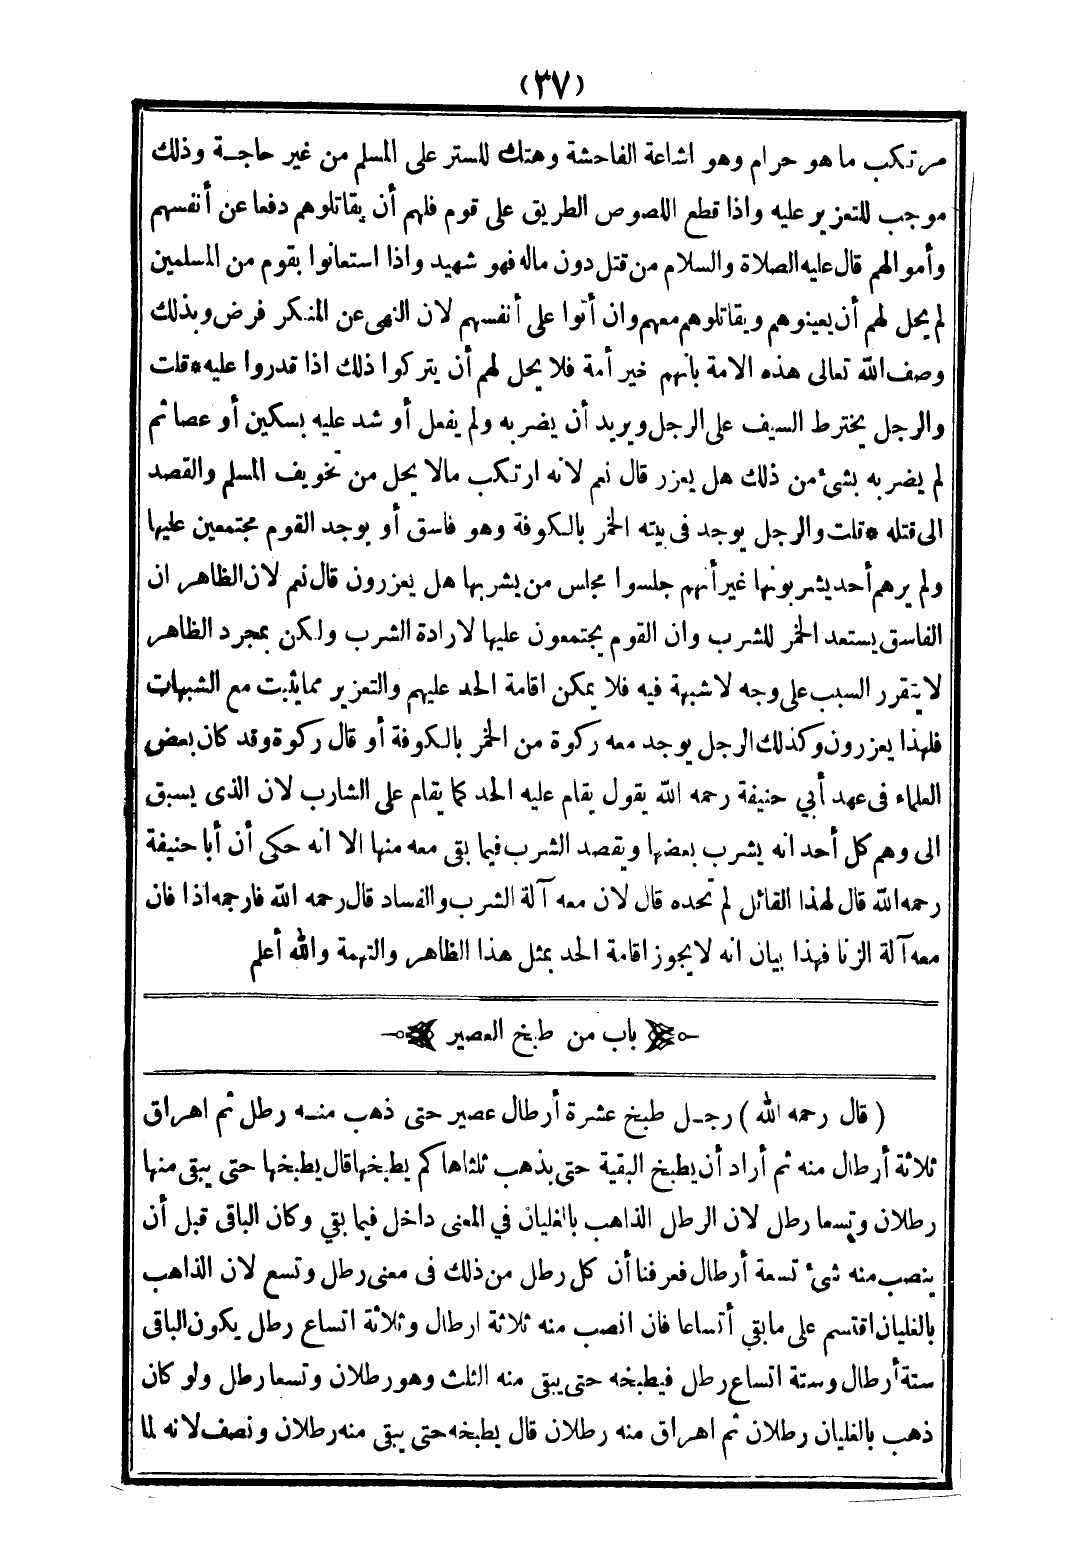 (٣٧)
مرتكب ما هو حرام وهو اشاعة الفاحشة وهتك للستر على المسلم من غير حاجة وذلك
موجب للتعزير عليه واذا قطع اللصوص الطريق على قوم فلهم أن يقاتلوهم دفعا عن أنفسهم
وأموالهم قال عليه الصلاة والسلام من قتل دون ماله فهو شهيد واذا استعانوا بقوم من المسلمين
لم يحل لهم أن يعينوهم ويقاتلوهم معهم وان أتوا على أنفسهم لان النهى عن المنكر فرض وبذلك
وصف الله تعالى هذه الامة بأنهم خير أمة فلا يحل لهم أن يتركوا ذلك اذا قدروا عليه * قلت
والرجل يخترط السيف على الرجل ويريد أن يضربه ولم يفعل أو شد عليه بسكين أو عصا ثم
لم يضربه بشئ من ذلك هل يعزر قال نعم لانه ارتكب مالا يحل من تخويف المسلم والقصد
الى قتله * قلت والرجل يوجد فى بيته الخمر بالكوفة وهو فاسق أو يوجد القوم مجتمعين عليها
ولم يرهم أحد يشربونها غير أنهم جلسوا مجلس من يشربها هل يعزرون قال نعم لان الظاهر ان
الفاسق يستعد الخمر للشرب وان القوم يجتمعون عليها لارادة الشرب ولكن بمجرد الظاهر
لا يتقرر السبب على وجه لا شبهة فيه فلا يمكن اقامة الحد عليهم والتعزير مما يثبت مع الشبهات
فلهذا يعزرون وكذلك الرجل يوجد معه ركوة من الخمر بالكوفة أو قال ركوة وقد كان بعض
العلماء فى عهد أبي حنيفة رحمه الله يقول يقام عليه الحد كما يقام على الشارب لان الذى يسبق
الى وهم كل أحد انه يشرب بعضها ويقصد الشرب فيما بقى معه منها الا انه حكى أن أبا حنيفة
رحمه الله قال لهذا القائل لم تحده قال لان معه آلة الشرب والفساد قال رحمه الله فارجمه اذا فان
معه آلة الزنا فهذا بيان انه لا يجوز اقامة الحد بمثل هذا الظاهر والتهمة والله أعلم
باب من طبخ العصير
( قال رحمه الله ) رجل طبخ عشرة أرطال عصير حتى ذهب منه رطل ثم اهراق
ثلاثة أرطال منه ثم أراد أن يطبخ البقية حتى يذهب ثلثاها كم يطبخها قال يطبخها حتى يبقى منها
رطلان وتسعا رطل لان الرطل الذاهب بالغليان في المعنى داخل فيما بقي وكان الباقى قبل أن
ينصب منه شئ تسعة أرطال فعرفنا أن كل رطل من ذلك فى معنى رطل وتسع لان الذاهب
بالغليان اقتسم على ما بقي أتساعا فان انصب منه ثلاثة ارطال وثلاثة اتساع رطل يكون الباقى
ستة أرطال وستة اتساع رطل فيطبخه حتى يبقى منه الثلث وهو رطلان وتسعا رطل ولو كان
ذهب بالغليان رطلان ثم اهراق منه رطلان قال يطبخه حتى يبقى منه رطلان ونصف لانه لما